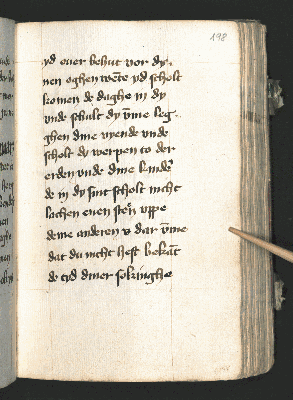 198
yd ouer behut vor dy-
nen oghen wēte yd scholt
komen de daghe in dy
vnde schult dy vme leg-
ghen dine vyende vnde
scholt dy werpen to der
erden vnde dine kinder
de in dy sint scholt nicht
lachen enen sten vppe
deme anderen v dar vme
dat du nicht hefst bekāt
de tyd diner sokinghe